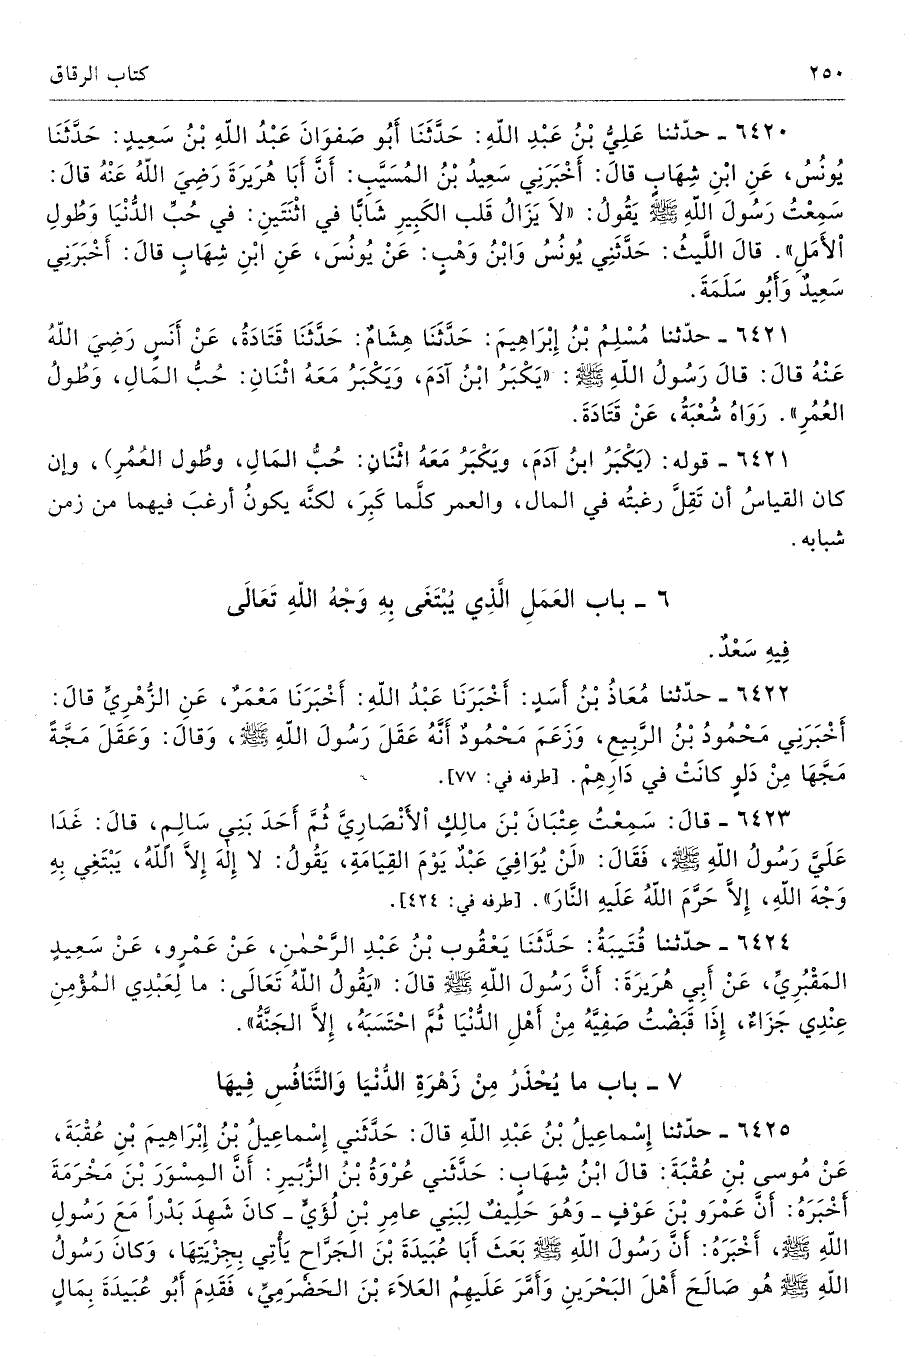 ٢٥٠ كتاب الرقاق
٦٤٢٠ ـ حدّثنا عَلِيُّ بْنُ عَبْدِ اللّهِ: حَدَّثَنَا أَبُو صَفوَانَ عَبْدُ اللّهِ بْنُ سَعِيدٍ: حَدَّثَنَا
يُونُسُ، عَنِ ابْنِ شِهَابٍ قالَ: أَخْبَرَنِي سَعِيدُ بْنُ المُسَيَّبِ: أَنَّ أَبَا هُرَيرَةَ رَضِيَ اللّهُ عَنْهُ قالَ:
سَمِعْتُ رَسُولَ اللّهِ ﷺ يَقُولُ: «لاَ يَزَالُ قَلب الكَبِيرِ شَابًّا في اثْنَتَينِ: في حُبِّ الدُّنْيَا وَطُولِ
الأَمَلِ». قالَ اللَّيثُ: حَدَّثَنِي يُونُسُ وَابْنُ وَهْبٍ: عَنْ يُونُسَ، عَنِ ابْنِ شِهَابٍ قالَ: أَخْبَرَنِي
سَعِيدٌ وَأَبُو سَلَمَةَ.
٦٤٢١ ـ حدّثنا مُسْلِمُ بْنُ إِبْرَاهِيمَ: حَدَّثَنَا هِشَامٌ: حَدَّثَنَا قَتَادَةُ، عَنْ أَنَسٍ رَضِيَ اللّهُ
عَنْهُ قالَ: قالَ رَسُولُ اللّهِ ﷺ: «يَكْبَرُ ابْنُ آدَمَ، وَيَكْبَرُ مَعَهُ اثْنَانِ: حُبُّ المَالِ، وَطُولُ
العُمُرِ». رَوَاهُ شُعْبَةُ، عَنْ قَتَادَةَ.
٦٤٢١ ـ قوله: (يَكْبَرُ ابنُ آدَمَ، ويَكْبَرُ مَعَهُ اثْنَانِ: حُبُّ المَالِ، وطُول العُمُرِ)، وإن
كان القياسُ أن تَقِلَّ رغبتُه في المال، والعمر كلَّما كَبِرَ، لكنَّه يكونُ أرغبَ فيهما من زمن
شبابه.
٦ ـ باب العَمَلِ الَّذِي يُبْتَغَى بِهِ وَجْهُ اللّهِ تَعَالَى
فِيهِ سَعْدٌ.
٦٤٢٢ ـ حدّثنا مُعَاذُ بْنُ أَسَدٍ: أَخْبَرَنَا عَبْدُ اللّهِ: أَخْبَرَنَا مَعْمَرٌ، عَنِ الزُّهْرِيِّ قالَ:
أَخْبَرَنِي مَحْمُودُ بْنُ الرَّبِيعِ، وَزَعَمَ مَحْمُودٌ أَنَّهُ عَقَلَ رَسُولَ اللّهِ ﷺ، وَقالَ: وَعَقَلَ مَجَّةً
مَجَّهَا مِنْ دَلوٍ كانَتْ في دَارِهِمْ. [طرفه في: ٧٧].
٦٤٢٣ ـ قالَ: سَمِعْتُ عِتْبَانَ بْنَ مالِكٍ الأَنْصَارِيَّ ثُمَّ أَحَدَ بَنِي سَالِمٍ، قالَ: غَدَا
عَلَيَّ رَسُولُ اللّهِ ﷺ، فَقَالَ: «لَنْ يُوَافِيَ عَبْدٌ يَوْمَ القِيَامَةِ، يَقُولُ: لا إِلٰهَ إِلاَّ اللّهُ، يَبْتَغِي بِهِ
وَجْهَ اللّهِ، إِلاَّ حَرَّمَ اللّهُ عَلَيهِ النَّارَ». [طرفه في: ٤٢٤].
٦٤٢٤ ـ حدّثنا قُتَيبَةُ: حَدَّثَنَا يَعْقُوب بْنُ عَبْدِ الرَّحْمٰنِ، عَنْ عَمْرٍو، عَنْ سَعِيدٍ
المَقْبُرِيِّ، عَنْ أَبِي هُرَيرَةَ: أَنَّ رَسُولَ اللّهِ ﷺ قالَ: «يَقُولُ اللّهُ تَعَالَى: ما لِعَبْدِي المُؤْمِنِ
عِنْدِي جَزَاءٌ، إِذَا قَبَضْتُ صَفِيَّهُ مِنْ أَهْلِ الدُّنْيَا ثُمَّ احْتَسَبَهُ، إِلاَّ الجَنَّةُ».
٧ ـ باب ما يُحْذَرُ مِنْ زَهْرَةِ الدُّنْيَا وَالتَّنَافُسِ فِيهَا
٦٤٢٥ ـ حدّثنا إِسْماعِيلُ بْنُ عَبْدِ اللّهِ قالَ: حَدَّثَنِي إِسْماعِيلُ بْنُ إِبْرَاهِيمَ بْنِ عُقْبَةَ،
عَنْ مُوسى بْنِ عُقْبَةَ: قالَ ابْنُ شِهَابٍ: حَدَّثَنِي عُرْوَةُ بْنُ الزُّبَيرِ: أَنَّ المِسْوَرَ بْنَ مَخْرَمَةَ
أَخْبَرَهُ: أَنَّ عَمْرَو بْنَ عَوْفٍ ـ وَهُوَ حَلِيفٌ لِبَنِي عامِرِ بْنِ لُؤَيٍّ ـ كانَ شَهِدَ بَدْراً مَعَ رَسُولِ
اللّهِ ﷺ، أَخْبَرَهُ: أَنَّ رَسُولَ اللّهِ ﷺ بَعَثَ أَبَا عُبَيدَةَ بْنَ الجَرَّاحِ يَأْتِي بِجِزْيَتِهَا، وَكانَ رَسُولُ
اللّهِ ﷺ هُو صَالَحَ أَهْلَ البَحْرَينِ وَأَمَّرَ عَلَيهِمُ العَلاَءَ بْنَ الحَضْرَمِيِّ، فَقَدِمَ أَبُو عُبَيدَةَ بِمَالٍ